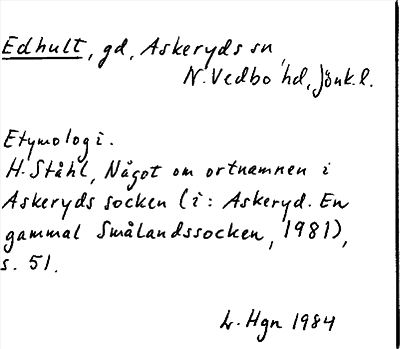 Edhult, gd, Askeryds sn,
N. Vedbo hd, Jönk.l.
Etymologi.
H. Ståhl, Något om ortnamnen i
Askeryds socken (i: Askeryd. En
gammal Smålandssocken, 1981),
s. 51.
L. Hgn 1984